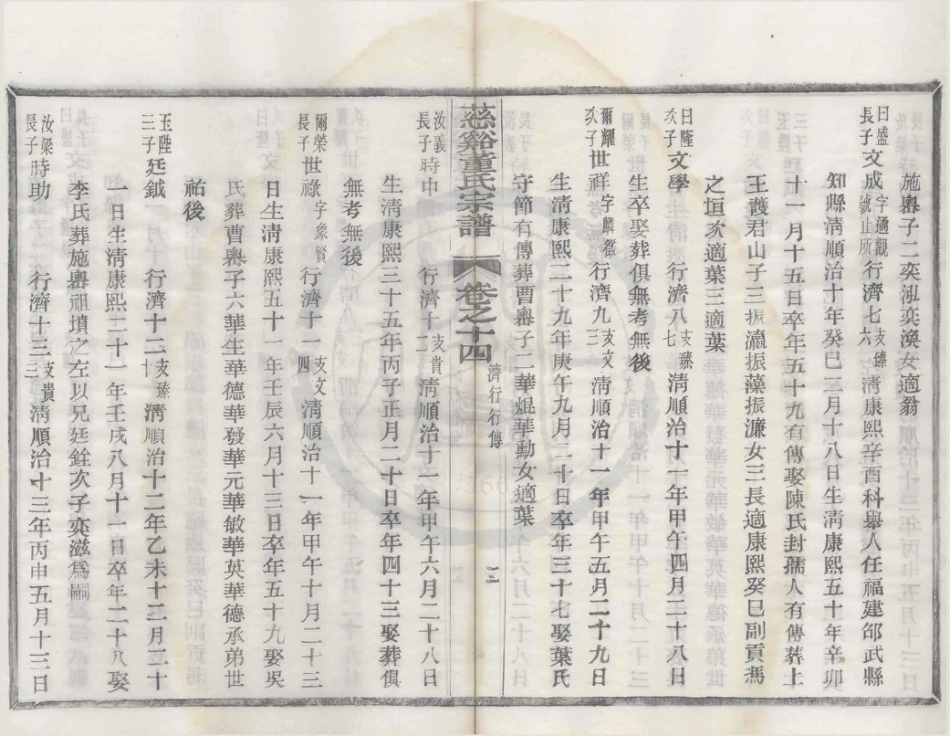 施嶴子二奕泓奕渙女適翁
日盛長子文成字邇觀號止所行濟七支臻六清康熙辛酉科舉人任福建邵武縣
知縣清順治十年癸巳三月十八日生清康熙五十年辛卯
十一月十五日卒年五十九有傳娶陳氏封孺人有傳葬上
王䕶君山子三振瀛振藻振濂女三長適康熙癸巳副貢馮
之垣次適葉三適葉
日隆次子文學行濟八支臻七清順治十一年甲午四月二十八日
生卒娶葬俱無考無後
爾耀次子世祥字麟徵行濟九支文三清順治十一年甲午五月二十九日
生清康熙二十九年庚午九月二十日卒年三十七娶葉氏
守節有傳葬曹嶴子二華焜華勳女適葉
慈谿董氏宗譜
卷之十四
濟行行傳
二
汝義長子時中行濟十支貴二清順治十一年甲午六月二十八日
生清康熙三十五年丙子正月二十日卒年四十三娶葬俱
無考無後
爾榮長子世祿字象賢行濟十一支文四清順治十一年甲午十月二十三
日生清康熙五十一年壬辰六月十三日卒年五十九娶吳
氏葬曹嶴子六華生華德華發華元華敏華英華德承弟世
祐後
王陞三子廷鉞行濟十二支臻十清順治十二年乙未十二月二十
一日生清康熙二十一年壬戌八月十一日卒年二十八娶
李氏葬施嶴祖墳之左以兄廷銓次子奕滋為嗣
汝梁長子時助行濟十三支貴三清順治十三年丙申五月十三日